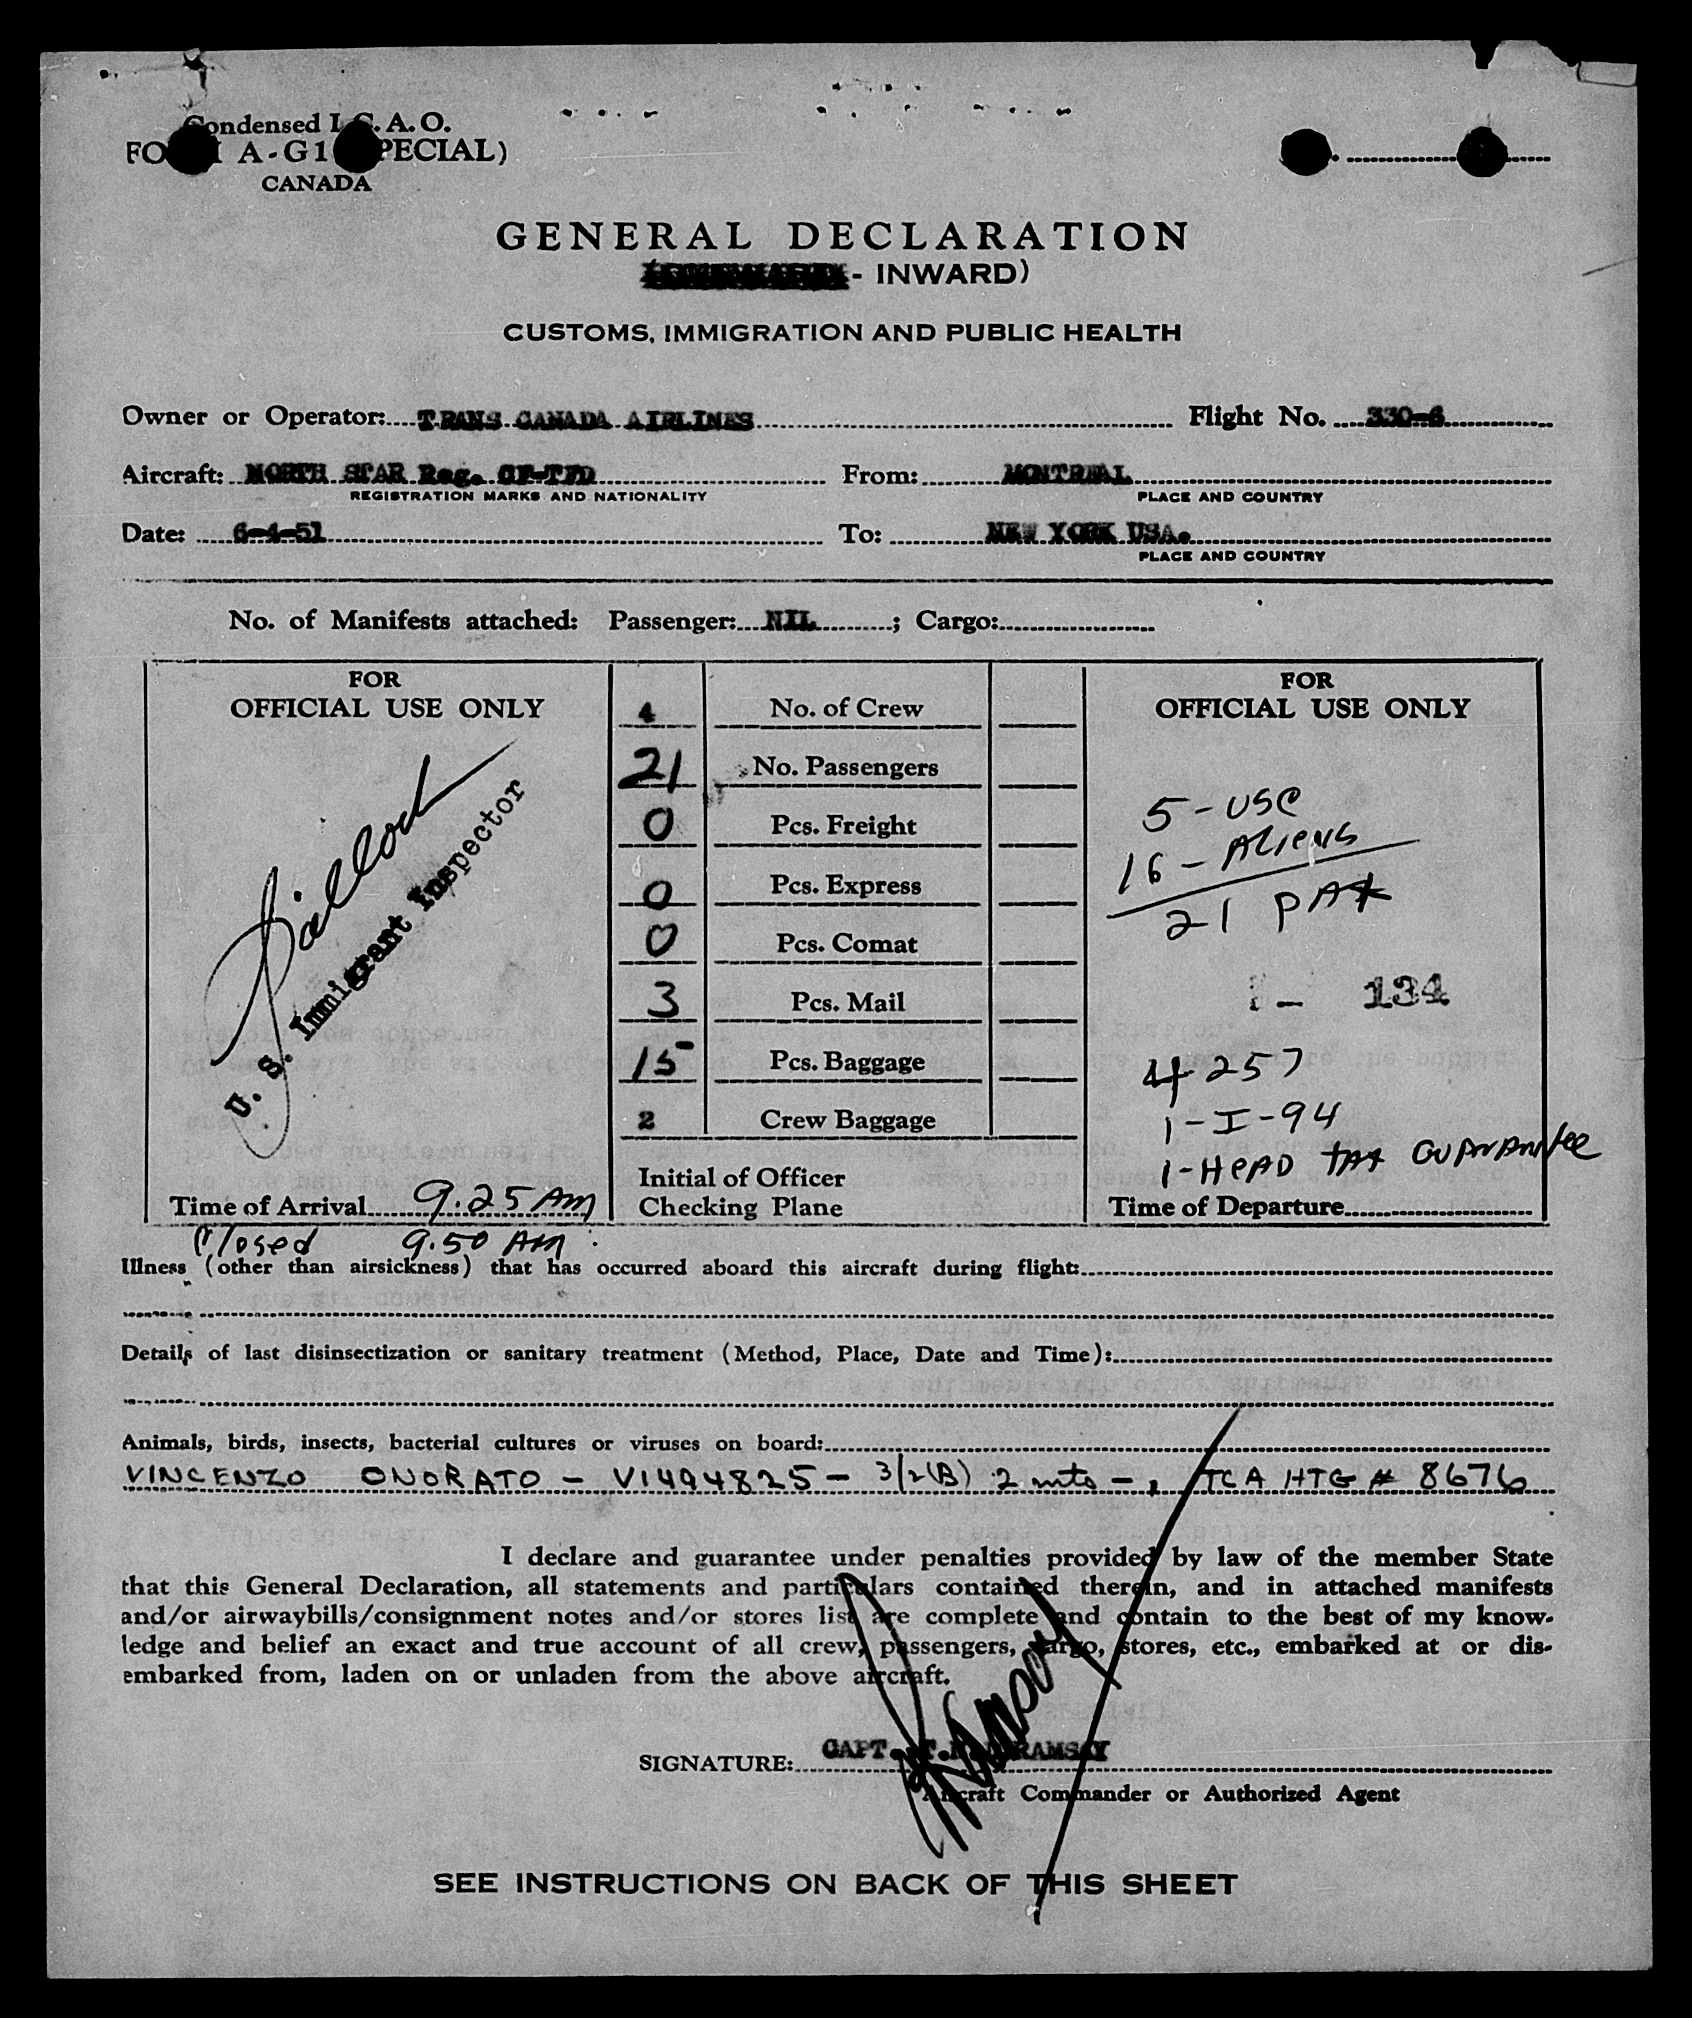 Condensed I.C.A.O.
A-G1 PECIAL)
CANADA
GENERAL DECLARATION
- INWARD)
CUSTOMS, IMMIGRATION AND PUBLIC HEALTH
Owner or Operator: TRANS CANADA AIRLINES Flight No. 330-6
Aircraft: NORTH STAR Reg. CF-TFD From: MONTREAL
REGISTRATION MARKS AND NATIONALITY PLACE AND COUNTRY
Date: 6-4-51 To: NEW YORK USA.
PLACE AND COUNTRY
No. of Manifests attached: Passenger: NIL ; Cargo:
FOR
OFFICIAL USE ONLY
U. S. Immigrant Inspector
Time of Arrival 9.25 AM
Closed 9.50 AM
4 No. of Crew
21 No. Passengers
0 Pcs. Freight
0 Pcs. Express
0 Pcs. Comat
3 Pcs. Mail
15 Pcs. Baggage
2 Crew Baggage
Initial of Officer
Checking Plane
FOR
OFFICIAL USE ONLY
5 - USC
16 - Aliens
21 PAX
- 134
4 257
1 - I - 94
1 - HEAD TAX GUARANTEE
Time of Departure
Illness (other than airsickness) that has occurred aboard this aircraft during flight:
Details of last disinsectization or sanitary treatment (Method, Place, Date and Time):
Animals, birds, insects, bacterial cultures or viruses on board:
VINCENZO ONORATO - V1494825 - 3/2(B) 2 mts - , TCA HTG # 8676
I declare and guarantee under penalties provided by law of the member State
that this General Declaration, all statements and particulars contained therein, and in attached manifests
and/or airwaybills/consignment notes and/or stores list are complete and contain to the best of my know-
ledge and belief an exact and true account of all crew, passengers, cargo, stores, etc., embarked at or dis-
embarked from, laden on or unladen from the above aircraft.
SIGNATURE: CAPT. RAMSAY
Aircraft Commander or Authorized Agent
SEE INSTRUCTIONS ON BACK OF THIS SHEET